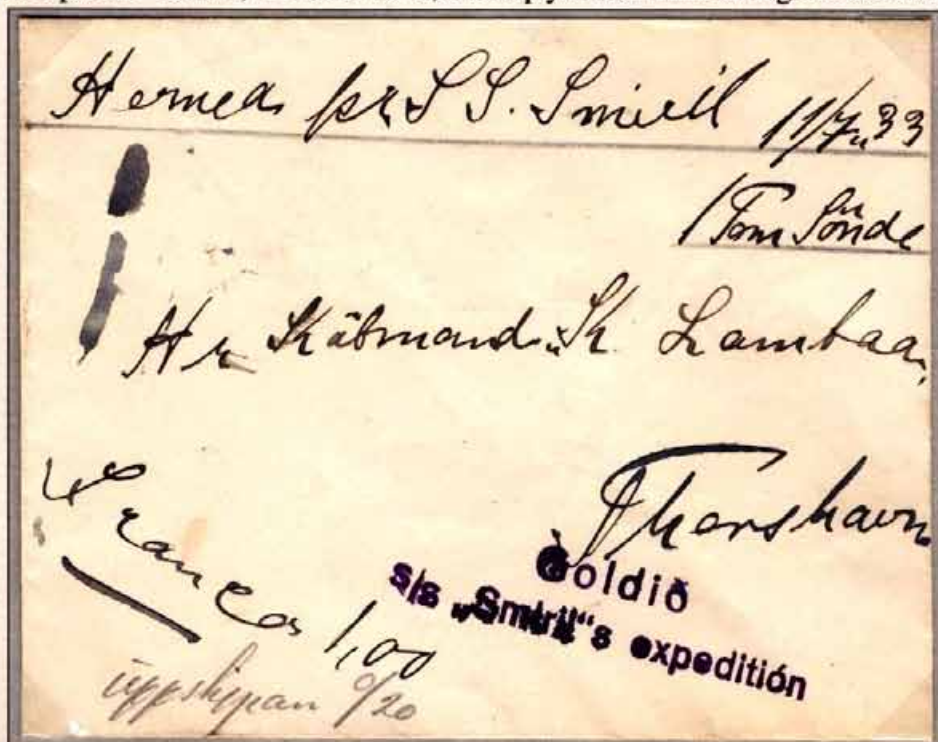 Hermed pr S S. Smiril 11/7 33
1 Tom Tønde
Hr Købmand Sk. Lambaa
Thorshavn
Franco 1,00
Goldið
s/s „Smiril“s expeditión
uppskipan 0/20